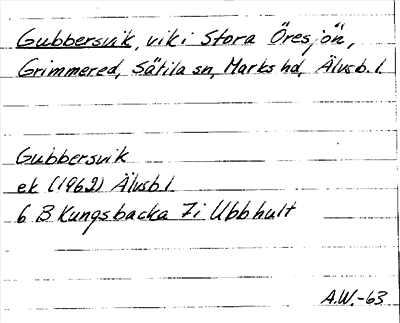 Gubbersvik, vik i Stora Öresjön,
Grimmered, Sätila sn, Marks hd, Älvsb. l.
Gubbersvik
ek (1962) Älvsb l.
6 B Kungsbacka 7i Ubbhult
A.W.-63